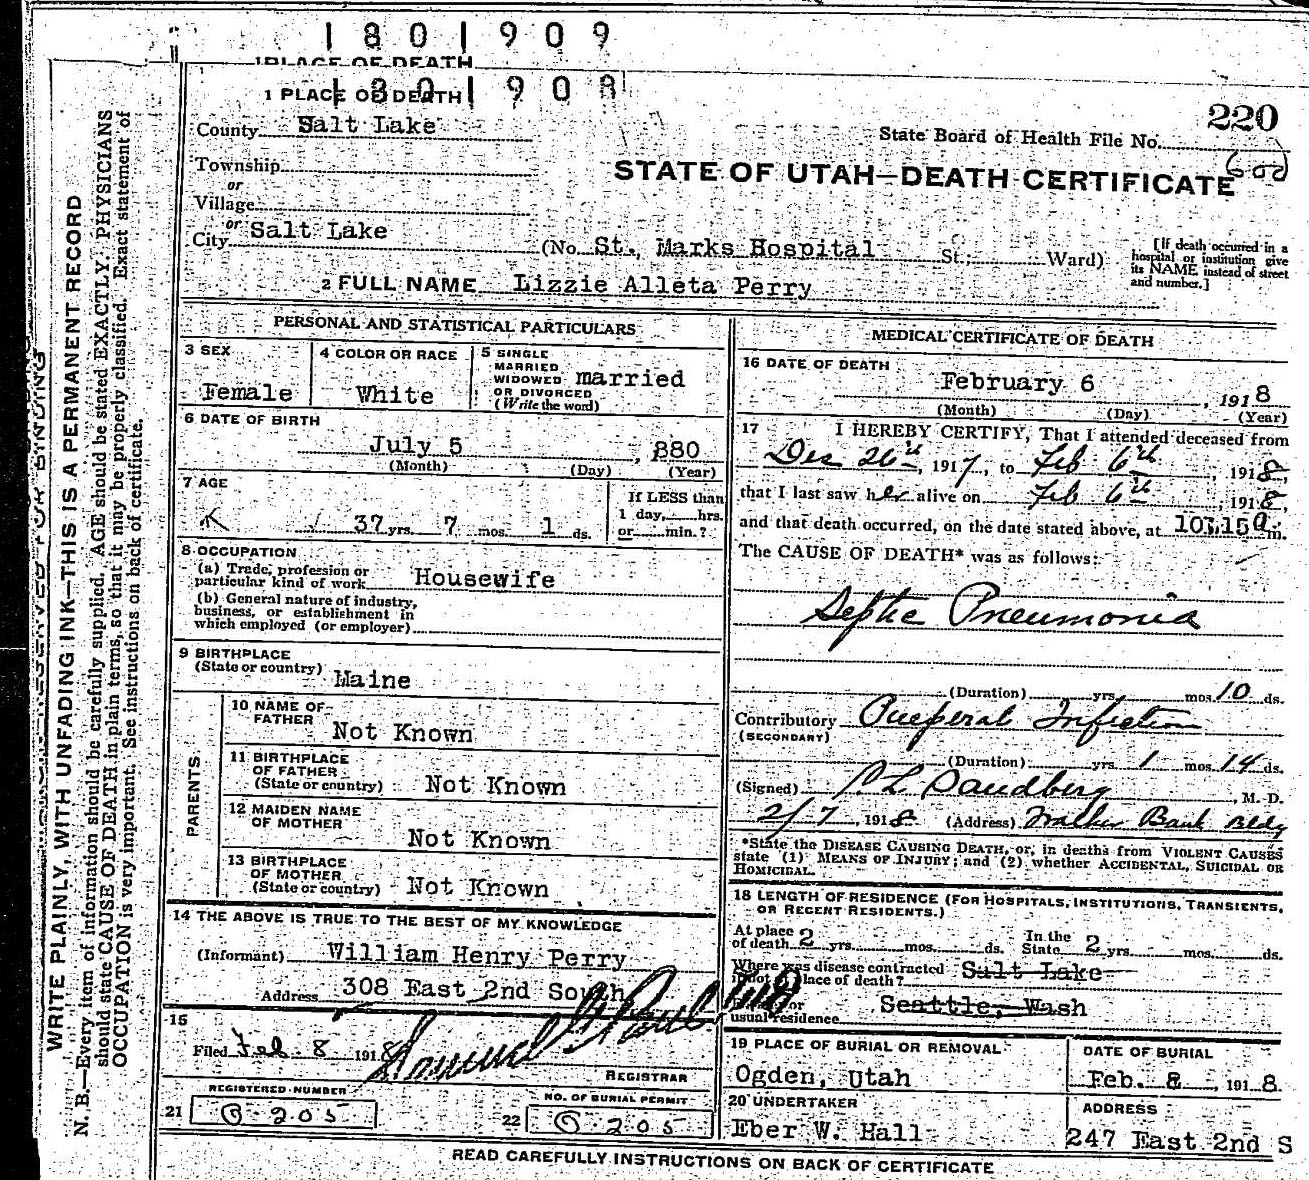 1801909
PLACE OF DEATH
1801908
1 PLACE OF DEATH
County Salt Lake
State Board of Health File No. 220
Township
or
Village
STATE OF UTAH—DEATH CERTIFICATE
or
City Salt Lake (No. St., Marks Hospital St.; Ward)
[If death occurred in a hospital or institution give its NAME instead of street and number.]
2 FULL NAME Lizzie Alleta Perry
PERSONAL AND STATISTICAL PARTICULARS
3 SEX Female
4 COLOR OR RACE White
5 SINGLE MARRIED WIDOWED OR DIVORCED (Write the word) married
6 DATE OF BIRTH
July 5, 880
(Month) (Day) (Year)
7 AGE
37 yrs. 7 mos. 1 ds.
If LESS than 1 day, hrs. or min.?
8 OCCUPATION
(a) Trade, profession or particular kind of work Housewife
(b) General nature of industry, business, or establishment in which employed (or employer)
9 BIRTHPLACE
(State or country) Maine
PARENTS
10 NAME OF FATHER Not Known
11 BIRTHPLACE OF FATHER (State or country) Not Known
12 MAIDEN NAME OF MOTHER Not Known
13 BIRTHPLACE OF MOTHER (State or country) Not Known
14 THE ABOVE IS TRUE TO THE BEST OF MY KNOWLEDGE
(Informant) William Henry Perry
Address 308 East 2nd South
15
Filed Feb 8 1918
Samuel G Paul
REGISTRAR
REGISTERED NUMBER
21 G-205
NO. OF BURIAL PERMIT
22 G-205
MEDICAL CERTIFICATE OF DEATH
16 DATE OF DEATH
February 6, 1918
(Month) (Day) (Year)
17 I HEREBY CERTIFY, That I attended deceased from
Dec 26th, 1917, to Feb 6th, 1918,
that I last saw her alive on Feb 6th, 1918,
and that death occurred, on the date stated above, at 10:15 a m.
The CAUSE OF DEATH* was as follows:
Septic Pneumonia
(Duration) yrs. mos. 10 ds.
Contributory Pueperal Infection
(SECONDARY)
(Duration) yrs. 1 mos. 14 ds.
(Signed) Sandberg, M. D.
2/7, 1918 (Address) Walker Bank Bldg
*State the DISEASE CAUSING DEATH, or, in deaths from VIOLENT CAUSES
state (1) MEANS OF INJURY; and (2) whether ACCIDENTAL, SUICIDAL OR
HOMICIDAL.
18 LENGTH OF RESIDENCE (FOR HOSPITALS, INSTITUTIONS, TRANSIENTS,
OR RECENT RESIDENTS.)
At place of death 2 yrs. mos. ds. In the State 2 yrs. mos. ds.
Where was disease contracted Salt Lake
if not place of death?
or
usual residence Seattle, Wash
19 PLACE OF BURIAL OR REMOVAL
Ogden, Utah
DATE OF BURIAL
Feb. 8, 1918
20 UNDERTAKER
Eber W. Hall
ADDRESS
247 East 2nd S
READ CAREFULLY INSTRUCTIONS ON BACK OF CERTIFICATE
WRITE PLAINLY, WITH UNFADING INK—THIS IS A PERMANENT RECORD
N. B.—Every item of information should be carefully supplied. AGE should be stated EXACTLY. PHYSICIANS
should state CAUSE OF DEATH in plain terms, so that it may be properly classified. Exact statement of
OCCUPATION is very important. See instructions on back of certificate.